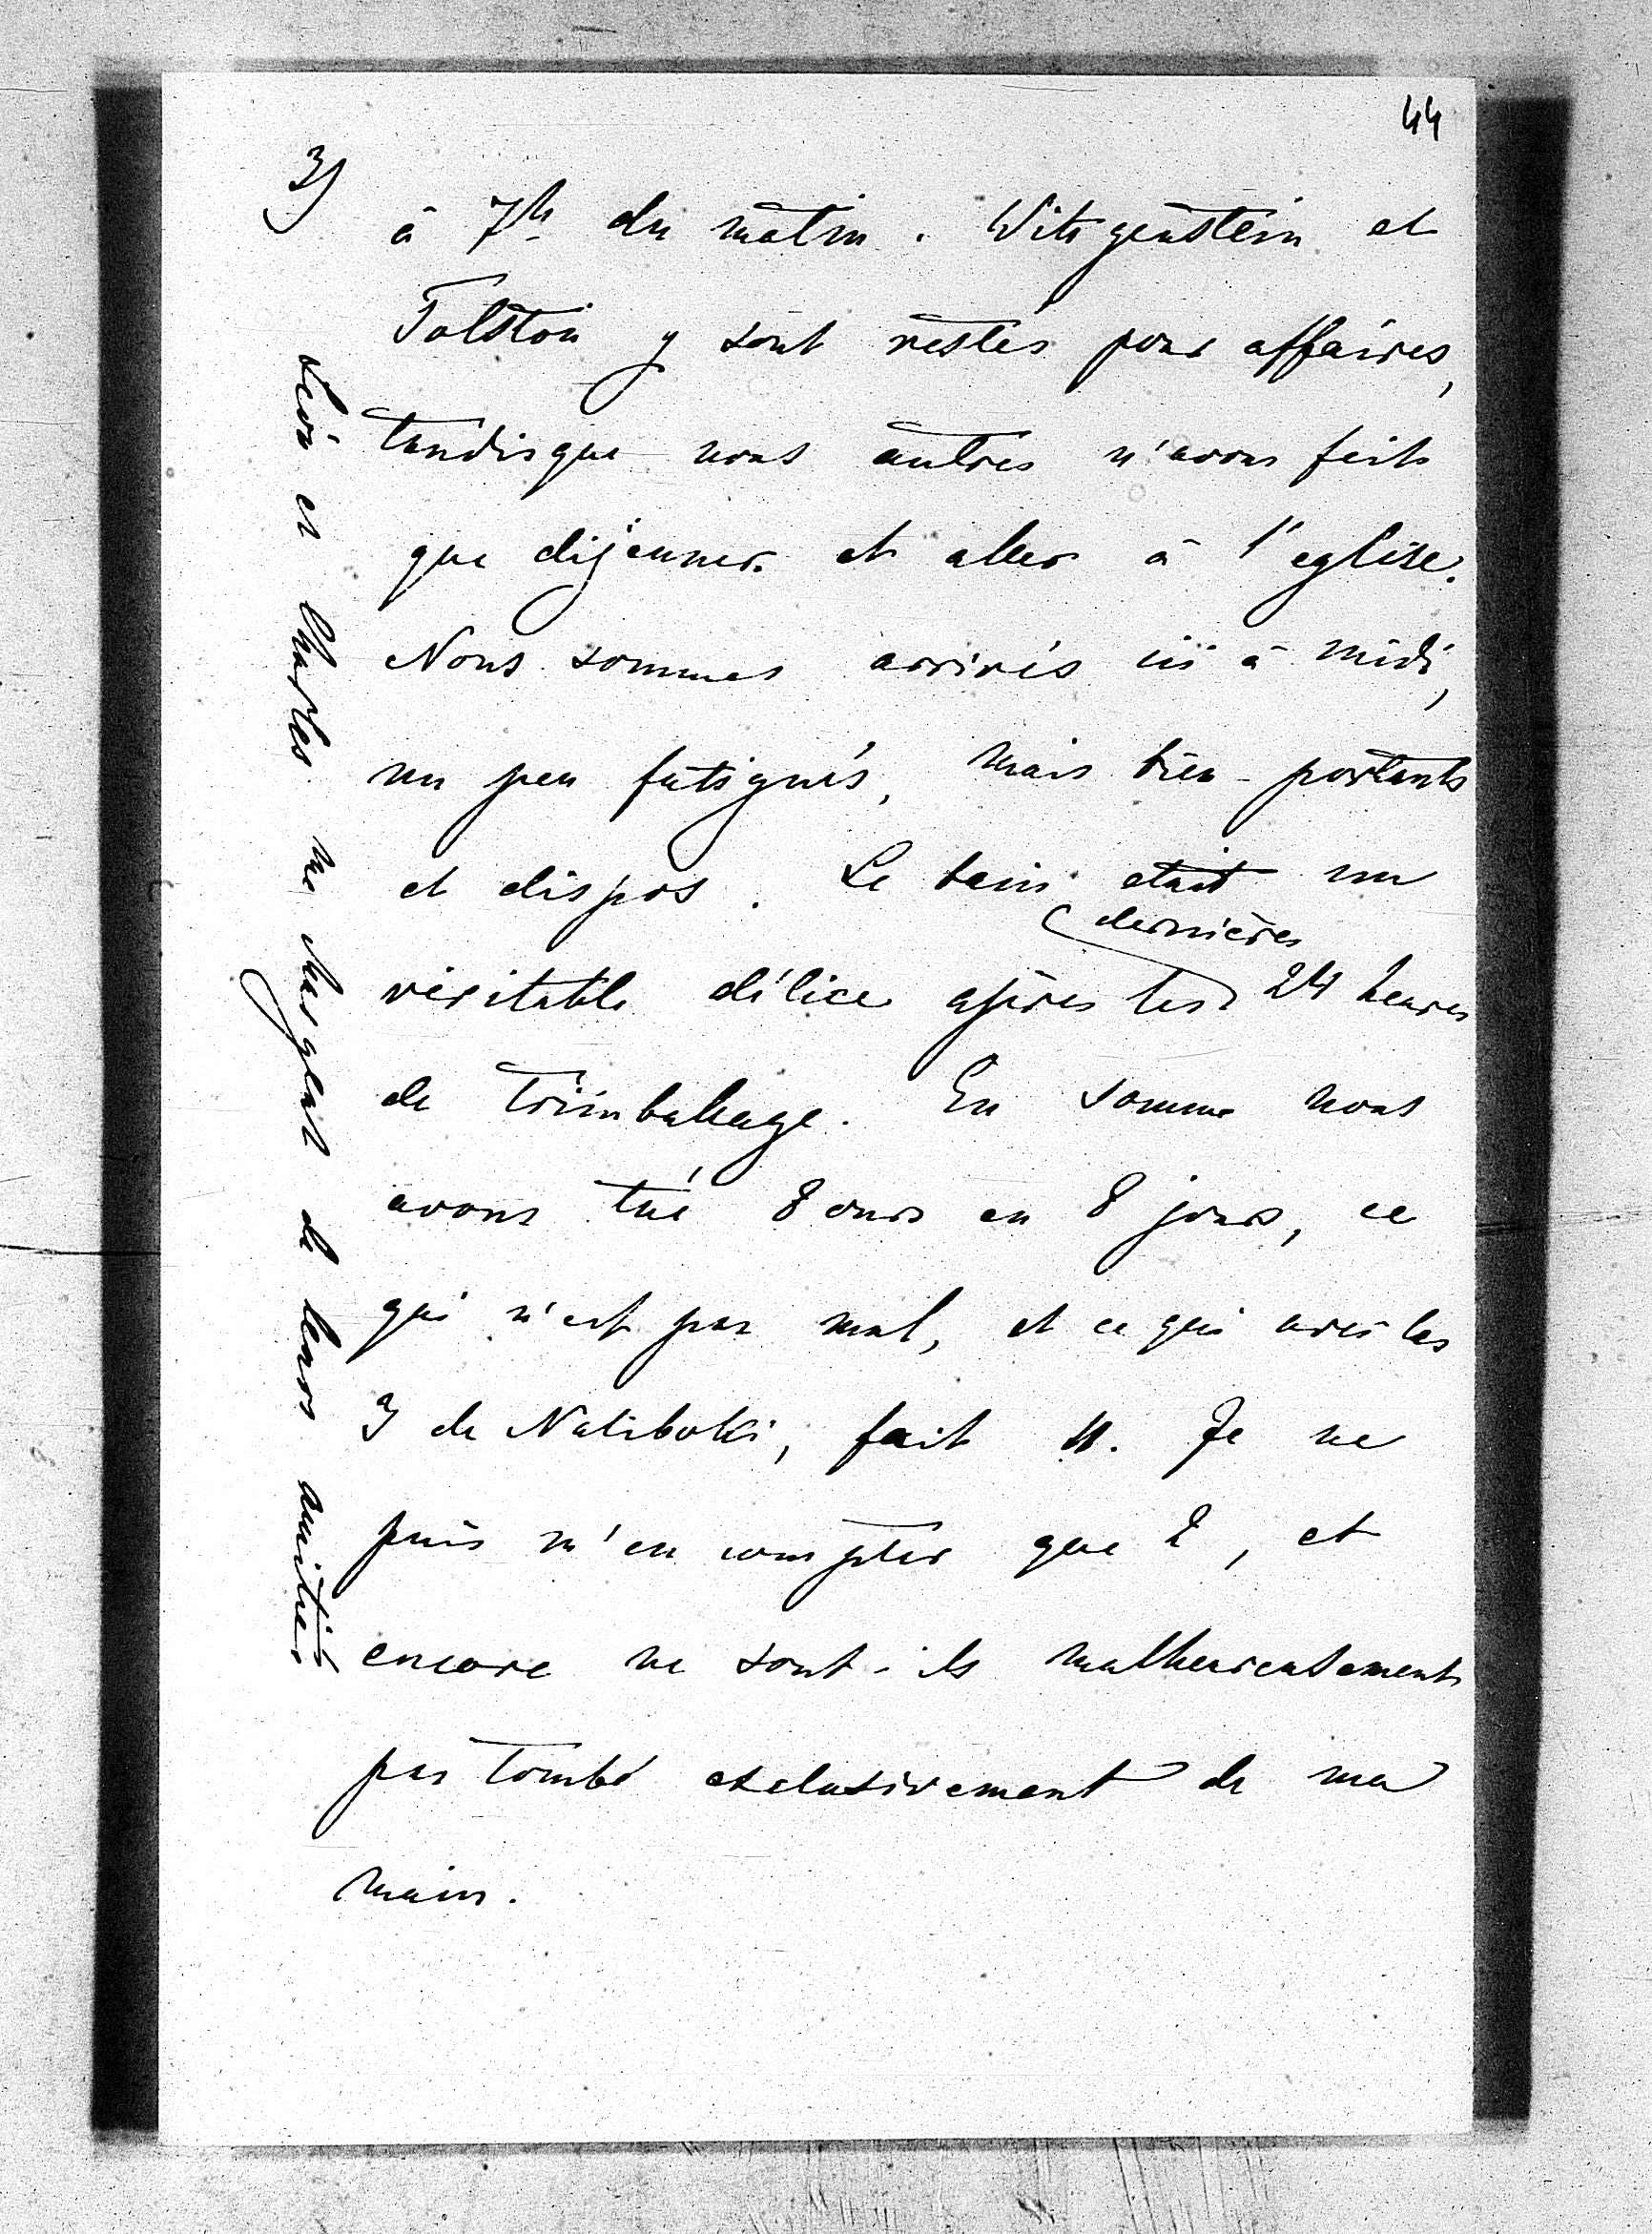 44
3)
à 7h du matin. Witgenstein et
Tolstoi y sont restés pour affaires,
tandisque nous autres n'avons faits
que dijeuner et aller à l'eglise.
Nous sommes arrivés ici à midi,
un peu fatigués, mais bien-portants
et dispos. Le bain etait un
dernières
véritable délice après les 24 heures
de trimbalage. En somme nous
avons tué 8 ours en 8 jours, ce
qui n'est pas mal, et ce qui avec les
3 de Naliboki, fait 11. Je ne
puis m'en compter que 2, et
encore ne sont-ils malheureusement
pas tombé exclusivement de ma
main.
et Charles me chargent de leurs amitiés